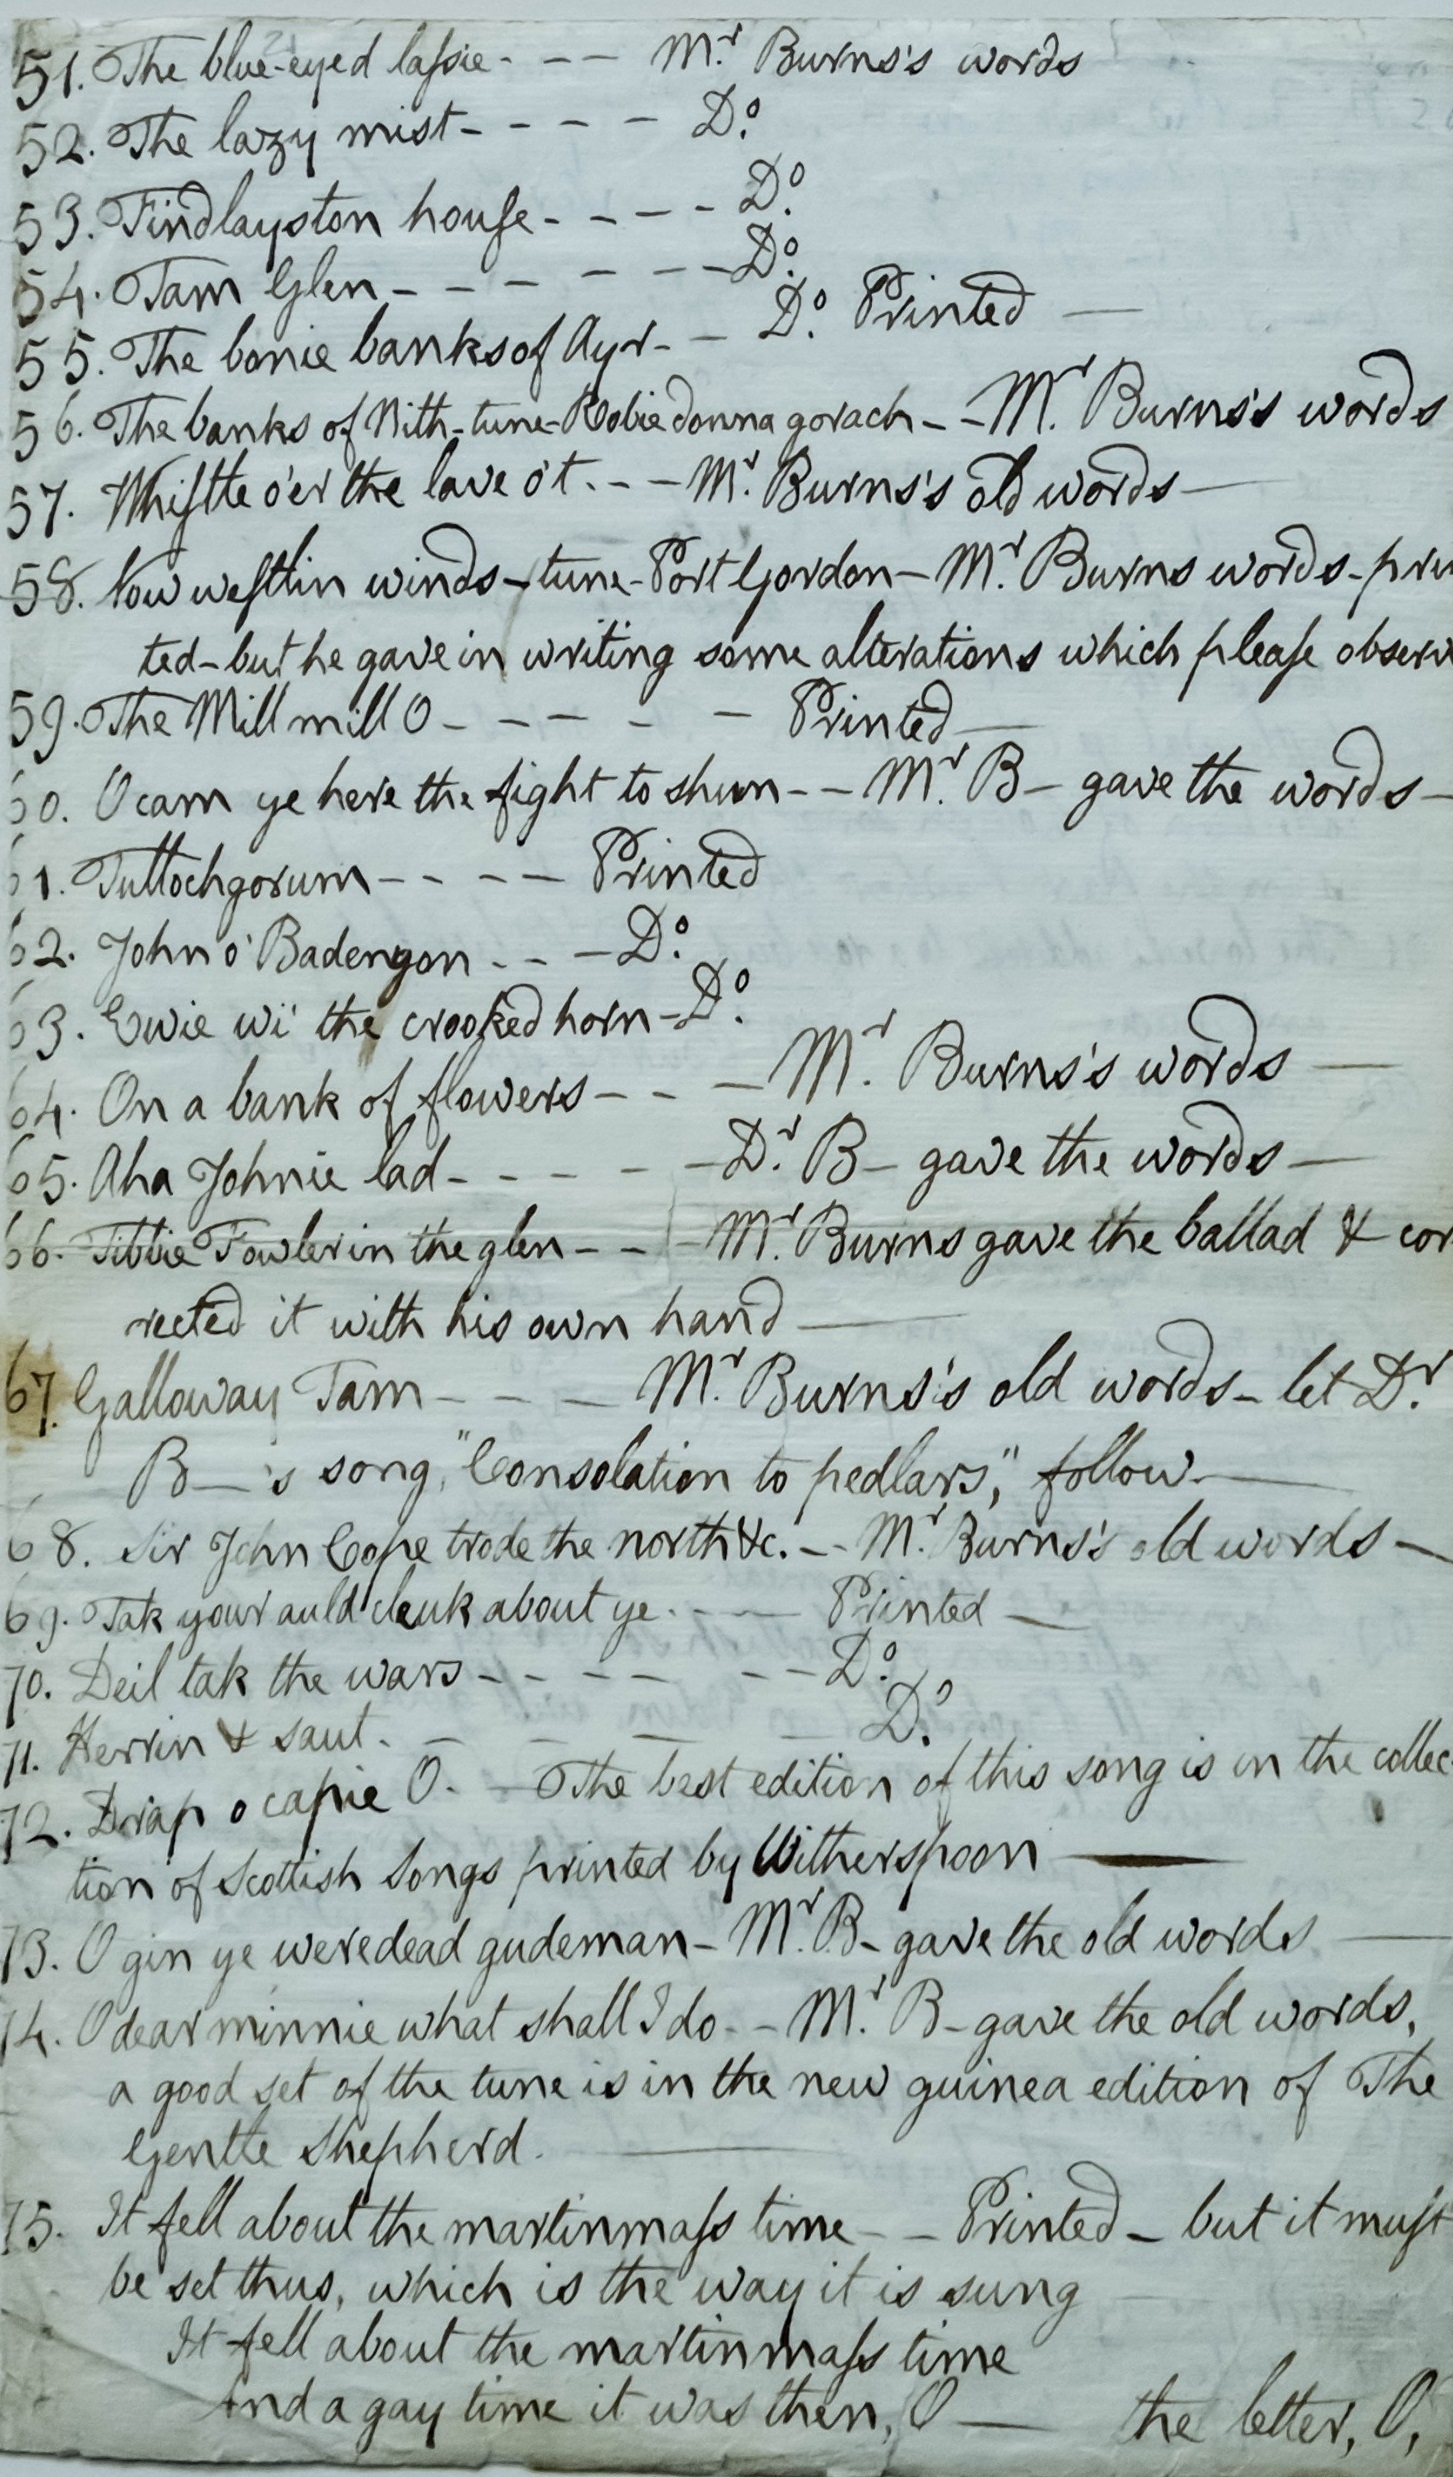 51. The blue-eyed laſsie - - - Mr. Burns's words
52. The lazy mist - - - - Do.
53. Findlayston houſe - - - - Do.
54. Tam Glen - - - - - - - Do.
55. The bonie banks of Ayr - - Do. Printed —
56. The banks of Nith - tune - Robie donna gorach - - Mr. Burns's words
57. Whiſtle o'er the lave o't. - - - Mr. Burns's old words —
58. Now weſtlin winds - tune - Port Gordon - Mr. Burns words - prin
ted - but he gave in writing some alterations which pleaſe observe
59. The Mill mill O - - - - - Printed —
60. O cam ye here the fight to shun - - Mr. B - gave the words -
61. Tullochgorum - - - - Printed
62. John o' Badengon - - - Do.
63. Ewie wi' the crooked horn - Do.
64. On a bank of flowers - - - Mr. Burns's words —
65. Aha Johnie lad - - - - - Dr. B - gave the words —
66. Tibbie Fowler in the glen - - - Mr. Burns gave the ballad & cor
rected it with his own hand —
67. Galloway Tam - - - Mr. Burns's old words - let Dr.
B—'s song, "Consolation to pedlars," follow —
68. Sir John Cope trode the north &c. - - Mr. Burns's old words -
69. Tak your auld cleuk about ye - - - Printed —
70. Deil tak the wars - - - - - - Do.
71. Herrin & saut. - - - - Do.
72. Drap o capie O. - The best edition of this song is in the collec-
tion of Scottish Songs printed by Witherspoon —
73. O gin ye were dead gudeman - Mr. B - gave the old words —
74. O dear minnie what shall I do - - Mr. B - gave the old words,
a good set of the tune is in the new guinea edition of The
Gentle Shepherd. —
75. It fell about the martinmaſs time - - Printed - but it muſt
be set thus, which is the way it is sung
It fell about the martinmaſs time
And a gay time it was then, O — the letter, O,